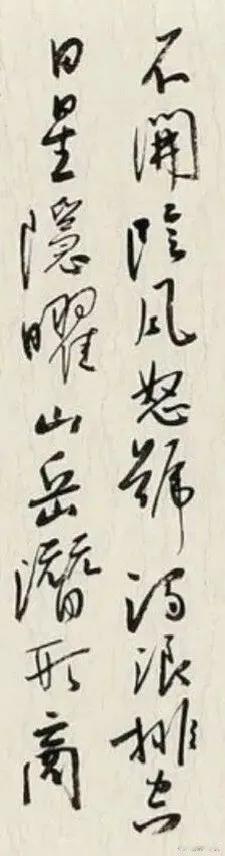 不開陰風怒號濁浪排空
日星隱曜山岳潛形商